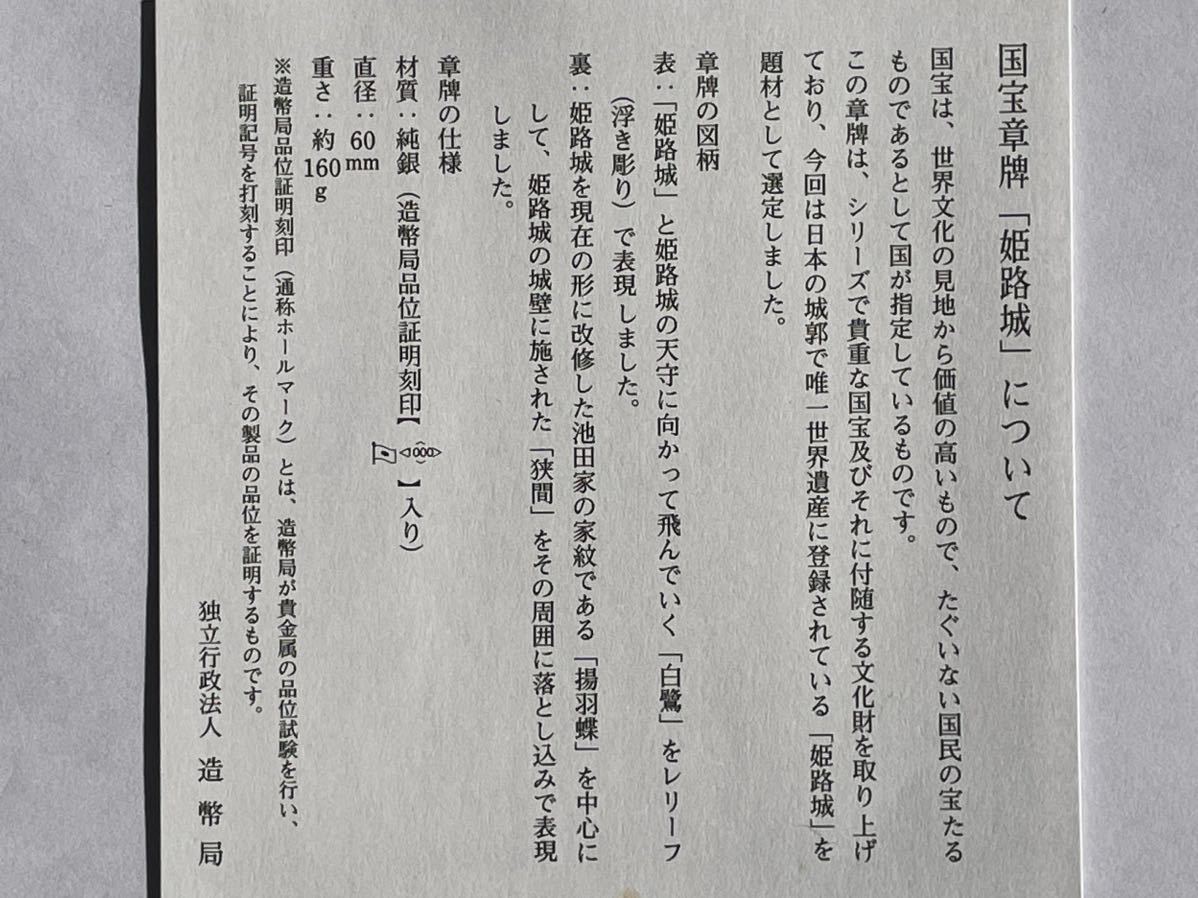 国宝章牌「姫路城」について
国宝は、世界文化の見地から価値の高いもので、たぐいない国民の宝たる
ものであるとして国が指定しているものです。
この章牌は、シリーズで貴重な国宝及びそれに付随する文化財を取り上げ
ており、今回は日本の城郭で唯一世界遺産に登録されている「姫路城」を
題材として選定しました。
章牌の図柄
表：「姫路城」と姫路城の天守に向かって飛んでいく「白鷺」をレリーフ
（浮き彫り）で表現しました。
裏：姫路城を現在の形に改修した池田家の家紋である「揚羽蝶」を中心に
して、姫路城の城壁に施された「狭間」をその周囲に落とし込みで表現
しました。
章牌の仕様
材質：純銀（造幣局品位証明刻印【1000】入り）
直径：60mm
重さ：約160g
※造幣局品位証明刻印（通称ホールマーク）とは、造幣局が貴金属の品位試験を行い、
証明記号を打刻することにより、その製品の品位を証明するものです。
独立行政法人 造幣局